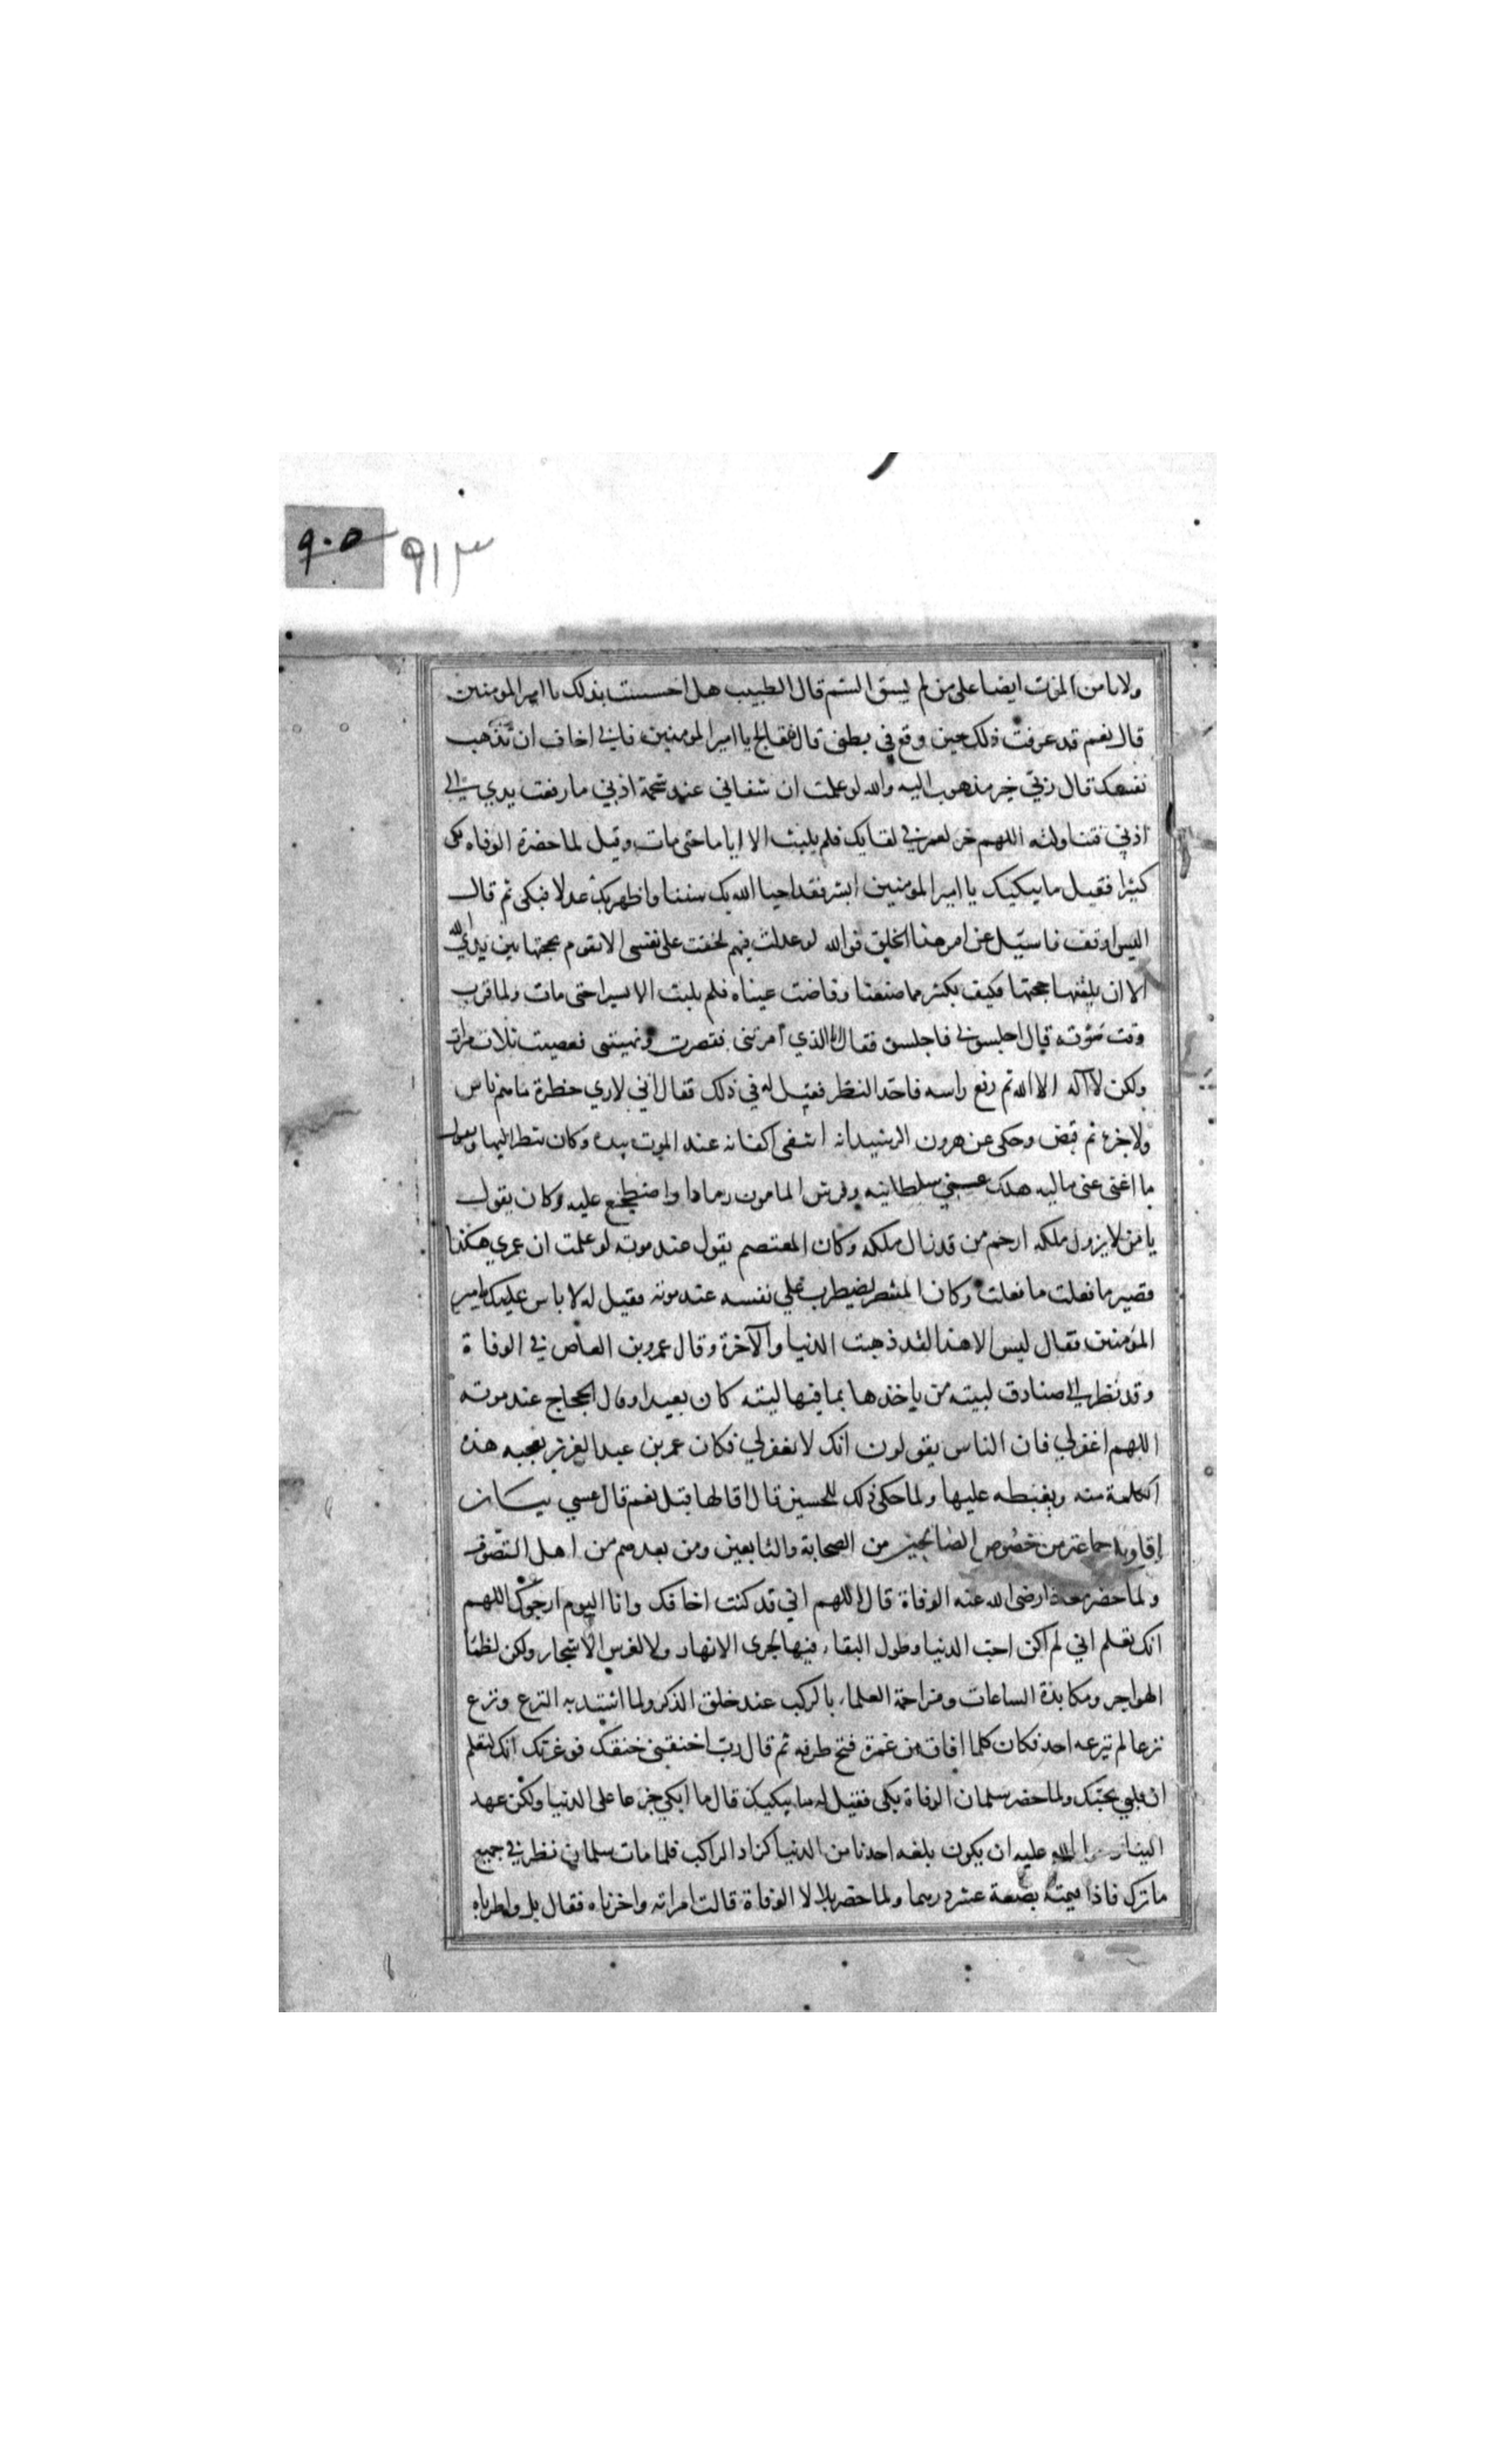 ٩٠٥ ٩١٣
ولا يامن الموت ايضا على من لم يسق السم قال الطبيب هل احسست بذلك يا امير المومنين
قال نعم قد عرفت ذلك حين وقع في بطني قال فتعالج يا امير المومنين فاني اخاف ان تذهب
نفسك قال ربي خير مذهوب اليه والله لو علمت ان شفائي عند شحمة اذني ما رفعت يدي الى
اذني فتناولته اللهم خر لعمر في لقايك فلم يلبث الا اياما حتى مات وقيل لما حضرة الوفاه بكى
كثيرا فقيل ما يبكيك يا امير المومنين ابشر فقد احيا الله بك سننا واظهر بك عدلا فبكى ثم قال
اليس اوقف فاسيل عن امر هذا الخلق فوالله لو عدلت فيهم لخفت على نفسي الا تقوم بحجتها بين يدي الله
الا ان يلقنها حجتها فكيف بكثير مما صنعنا وفاضت عيناه فلم يلبث الا يسيرا حتى مات ولما قرب
وقت موته قال اجلسوني فاجلسوه فقال انا الذي امرتني فقصرت ونهيتني فعصيت ثلاث مرات
ولكن لا اله الا الله ثم رفع راسه فاحد النظر فقيل له في ذلك فقال اني لاري حضرة ما هم بانس
ولا جن ثم قبض وحكى عن هرون الرشيد انه انتقى اكفانه عند الموت بيده وكان ينظر اليها ويقول
ما اغنى عني ماليه هلك عني سلطانيه وفرش المامون رمادا واضطجع عليه وكان يقول
يا من لا يزول ملكه ارحم من قد زال ملكه وكان المعتصم يقول عند موته لو علمت ان عمري هكذا
قصير ما فعلت ما فعلت وكان المنتصر يضطرب على نفسه عند موته فقيل له لا باس عليك يا امير
المؤمنين فقال ليس الا هذا لقد ذهبت الدنيا والآخرة وقال عمرو بن العاص في الوفاة
وقد نظر الى صنادق لبيته من ياخذها بما فيها ليته كان بعيدا وقال الحجاج عند موته
اللهم اغفر لي فان الناس يقولون انك لا تغفر لي فكان عمر بن عبد العزيز يعجبه هذه
الكلمة منه ويغبطه عليها ولما حكى ذلك للحسين قال اقالها قيل نعم قال عسي بيان
اقاويل جماعة من خصوص الصالحين من الصحابة والتابعين ومن بعدهم من اهل التصوف
ولما حضر معاذا رضى الله عنه الوفاة قال اللهم اني قد كنت اخافك وانا اليوم ارجوك اللهم
انك تعلم اني لم اكن احب الدنيا وطول البقاء فيها لجرى الانهار ولا لغرس الاشجار ولكن لظما
الهواجر ومكابدة الساعات ومزاحمة العلماء بالركب عند حلق الذكر ولما اشتد به النزع ونزع
نزعا لم ينزعه احد فكان كلما افاق من غمرة فتح طرفه ثم قال رب اخنقني خنقك فوعزتك انك لتعلم
ان قلبي يحبك ولما حضر سلمان الوفاة بكى فقيل له ما يبكيك قال ما ابكي جزعا على الدنيا ولكن عهد
الينا الله عليه ان يكون بلغه احدنا من الدنيا كزاد الراكب فلما مات سلمان نظر في جميع
ما ترك فاذا قيمته بضعة عشر درهما ولما حضر بلالا الوفاة قالت امراته واحزناه فقال بل واطرباه